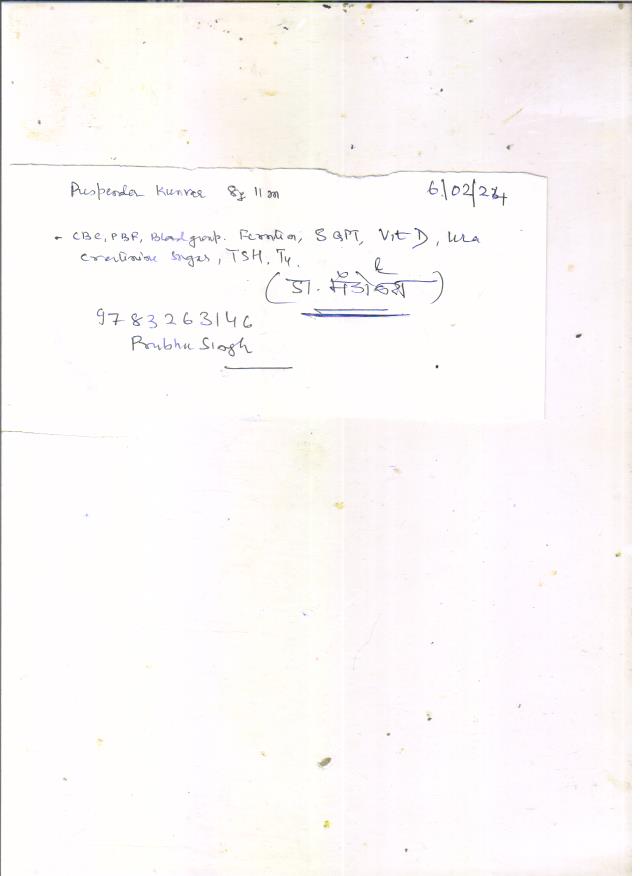 Puspender Kunvar 8y 11m 6/02/24
- CBC, PBF, Blood group. Ferritin, SGPT, Vit D, Urea
Creatinine Sugar, TSH, T4.
(डा.
9783263146
Prabhu Singh